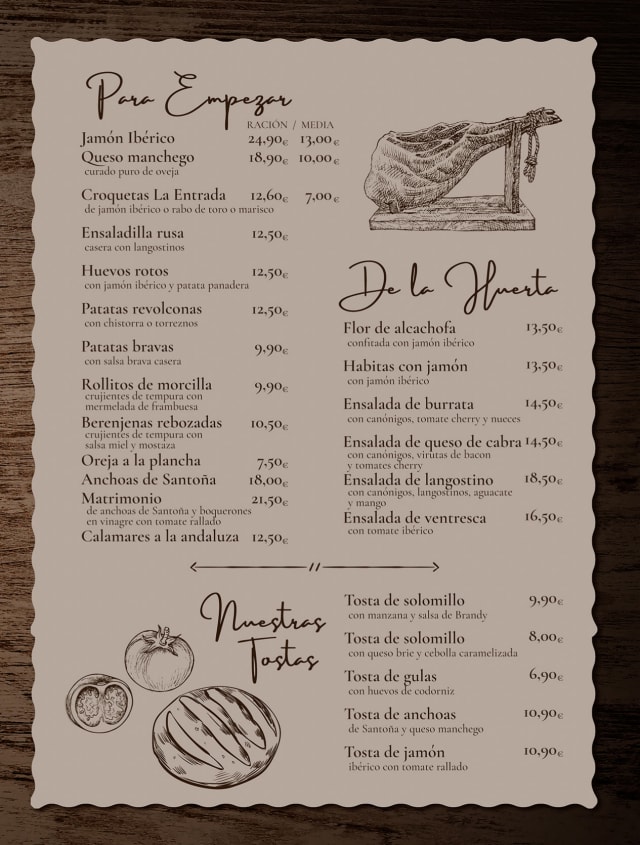 Para Empezar
RACIÓN / MEDIA
Jamón Ibérico 24,90€ 13,00€
Queso manchego 18,90€ 10,00€
curado puro de oveja
Croquetas La Entrada 12,60€ 7,00€
de jamón ibérico o rabo de toro o marisco
Ensaladilla rusa 12,50€
casera con langostinos
Huevos rotos 12,50€
con jamón ibérico y patata panadera
Patatas revolconas 12,50€
con chistorra o torreznos
Patatas bravas 9,90€
con salsa brava casera
Rollitos de morcilla 9,90€
crujientes de tempura con
mermelada de frambuesa
Berenjenas rebozadas 10,50€
crujientes de tempura con
salsa miel y mostaza
Oreja a la plancha 7,50€
Anchoas de Santoña 18,00€
Matrimonio 21,50€
de anchoas de Santoña y boquerones
en vinagre con tomate rallado
Calamares a la andaluza 12,50€
De la Huerta
Flor de alcachofa 13,50€
confitada con jamón ibérico
Habitas con jamón 13,50€
con jamón ibérico
Ensalada de burrata 14,50€
con canónigos, tomate cherry y nueces
Ensalada de queso de cabra 14,50€
con canónigos, virutas de bacon
y tomates cherry
Ensalada de langostino 18,50€
con canónigos, langostinos, aguacate
y mango
Ensalada de ventresca 16,50€
con tomate ibérico
Nuestras
Tostas
Tosta de solomillo 9,90€
con manzana y salsa de Brandy
Tosta de solomillo 8,00€
con queso brie y cebolla caramelizada
Tosta de gulas 6,90€
con huevos de codorniz
Tosta de anchoas 10,90€
de Santoña y queso manchego
Tosta de jamón 10,90€
ibérico con tomate rallado